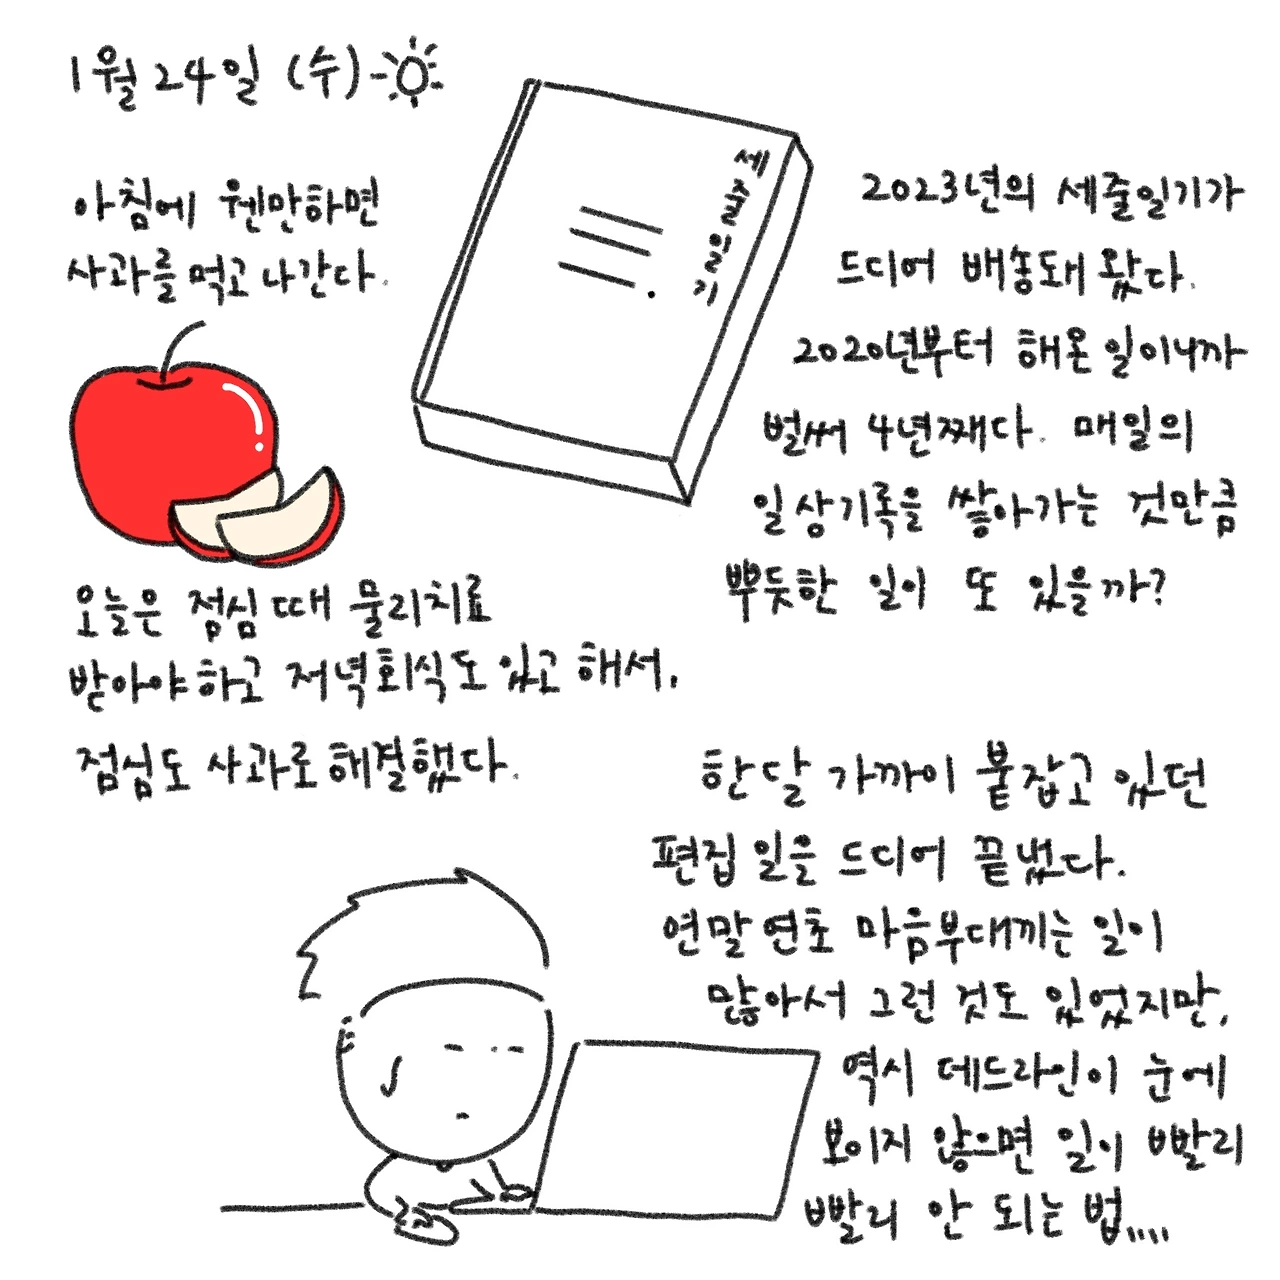 1월 24일 (수)
아침에 웬만하면
사과를 먹고 나간다.
세줄일기
2023년의 세줄일기가
드디어 배송돼 왔다.
2020년부터 해온 일이니까
벌써 4년째다. 매일의
일상기록을 쌓아가는 것만큼
뿌듯한 일이 또 있을까?
오늘은 점심 때 물리치료
받아야하고 저녁회식도 있고 해서.
점심도 사과로 해결했다.
한달 가까이 붙잡고 있던
편집 일을 드디어 끝냈다.
연말연초 마음부대끼는 일이
많아서 그런 것도 있었지만,
역시 데드라인이 눈에
보이지 않으면 일이 빨리
빨리 안 되는 법....